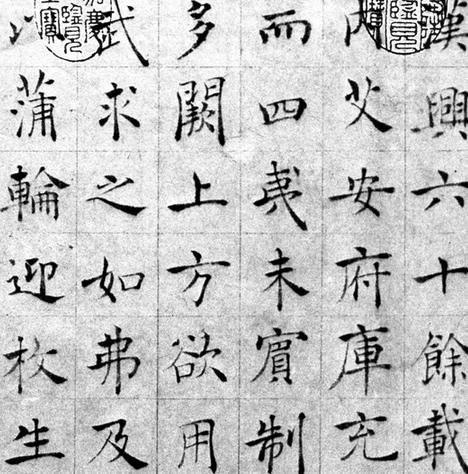 漢興六十餘載
內艾安府庫充
而四夷未賓制
多闕上方欲用
武求之如弗及
以蒲輪迎枚生